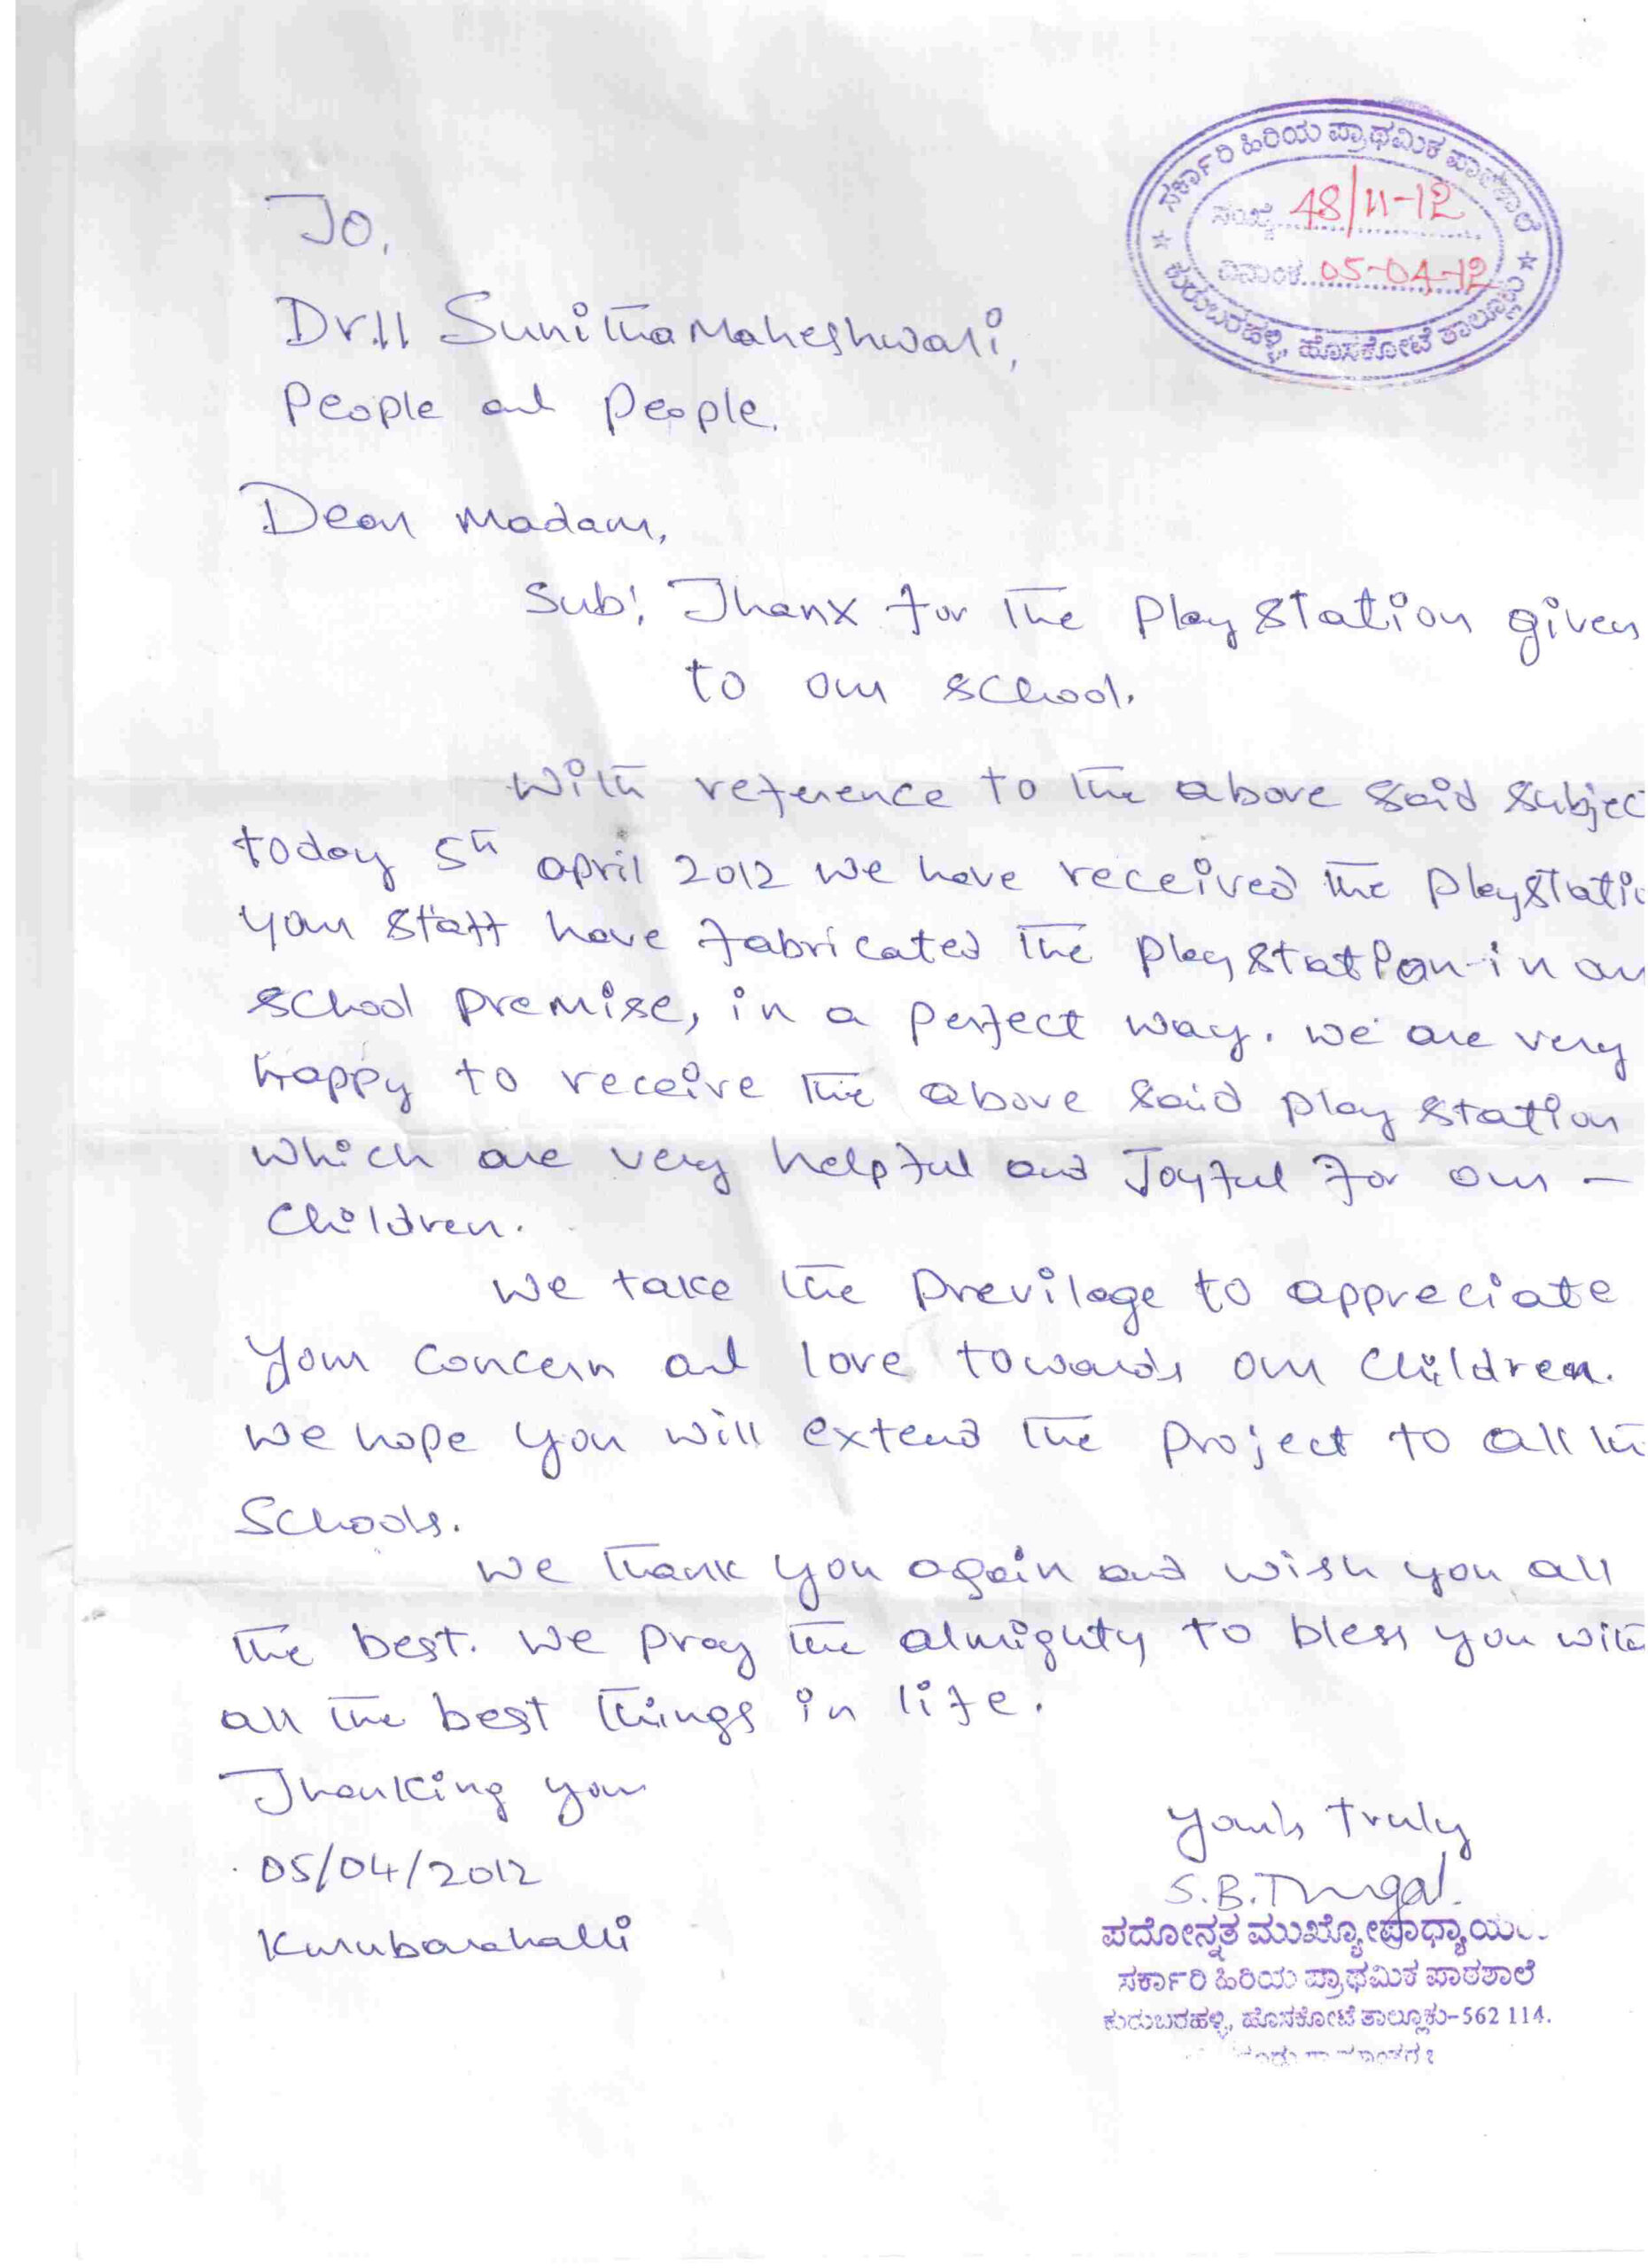 ಸರ್ಕಾರಿ ಹಿರಿಯ ಪ್ರಾಥಮಿಕ ಪಾಠಶಾಲೆ
ಸಂಖ್ಯೆ 48/11-12
ದಿನಾಂಕ 05-04-12
ಕುರುಬರಹಳ್ಳಿ, ಹೊಸಕೋಟೆ ತಾಲ್ಲೂಕು
To,
Dr.|| Sunitha Maheshwari,
People and People.
Dear Madam,
Sub: Thanx for the Play Station given
to our school.
With reference to the above said Subjec
today 5th april 2012 we have received the Playstatio
your staff have fabricated the play station in ou
school premise, in a perfect way. we are very
happy to receive the above said play station
which are very helpful and Joyful for our -
Children.
We take the Previlage to appreciate
your concern and love towards our Children.
We hope you will extend the Project to all the
Schools.
We thank you again and wish you all
the best. We pray the almighty to bless you with
all the best things in life.
Thanking you
05/04/2012
Kurubarahalli
Your's truly
S.B.
ಪದೋನ್ನತ ಮುಖ್ಯೋಪಾಧ್ಯಾಯ
ಸರ್ಕಾರಿ ಹಿರಿಯ ಪ್ರಾಥಮಿಕ ಪಾಠಶಾಲೆ
ಕುರುಬರಹಳ್ಳಿ, ಹೊಸಕೋಟೆ ತಾಲ್ಲೂಕು-562 114.